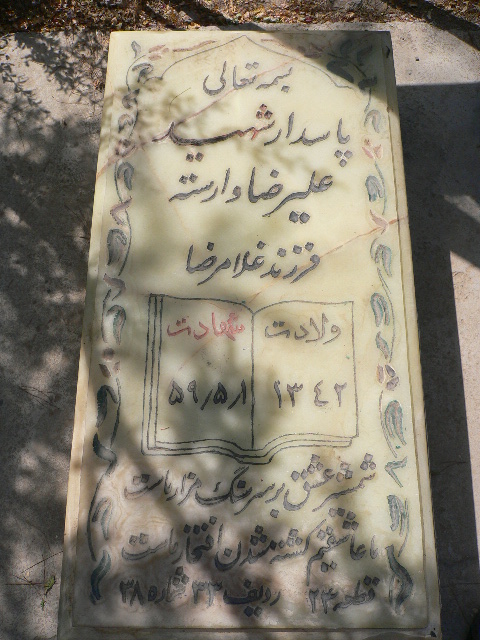 بسمه تعالی
پاسدار شهید
علیرضا وارسته
فرزند غلامرضا
ولادت شهادت
۱۳۴۲ ۵۹/۵/۱
شمشیر عشق بر سر سنگ مزار ماست
ما عاشقیم کشته شدن افتخار ماست
قطعه ۲۳ ردیف ۳۳ شماره ۳۸